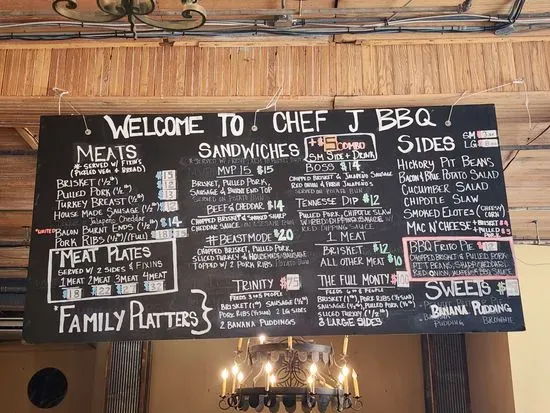 WELCOME TO CHEF J BBQ
MEATS
* SERVED W/ FIXIN'S
(PICKLED VEG & BREAD)
BRISKET (½#)
PULLED PORK (½#)
TURKEY BREAST (½#)
HOUSE MADE SAUSAGE (½#)
JALAPEÑO CHEDDAR
*LIMITED BACON BURNT ENDS (½#) $14
PORK RIBS (½/FULL)
*MEAT PLATES
SERVED W/ 2 SIDES & FIXINS
1 MEAT 2 MEAT 3 MEAT 4 MEAT
$18 $22 $27 $32
*FAMILY PLATTERS
SANDWICHES
+$5 COMBO
SM SIDE + DRINK
MVP 15 $15
BRISKET, PULLED PORK,
SAUSAGE & BURNT END TOP
BEEF & CHEDDAR $14
CHOPPED BRISKET & SMOKED SHARP
CHEDDAR SAUCE
#BEASTMODE $20
CHOPPED BRISKET, PULLED PORK,
SLICED TURKEY & HOUSEMADE SAUSAGE
TOPPED W/ 2 PORK RIBS
BOSS $14
CHOPPED BRISKET & JALAPEÑO SAUSAGE
RED ONION & FRESH JALAPEÑOS
TENNESSE DIP $12
PULLED PORK, CHIPOTLE SLAW
W/ RED DIPPING SAUCE
1 MEAT
BRISKET $12
ALL OTHER MEAT $10
TRINITY $75
FEEDS 3-4 PEOPLE
BRISKET (1#) SAUSAGE (½#)
PORK RIBS (½) 2 LG SIDES
2 BANANA PUDDINGS
THE FULL MONTY
FEEDS 6-8 PEOPLE
BRISKET (1#) PORK RIBS
PULLED PORK (½#) SAUSAGE (½#)
SLICED TURKEY (½#)
3 LARGE SIDES
SIDES
SM
LG
HICKORY PIT BEANS
BACON & BLUE POTATO SALAD
CUCUMBER SALAD
CHIPOTLE SLAW
SMOKED ELOTES (CHEESY CORN)
MAC N' CHEESE
BBQ FRITO PIE
CHOPPED BRISKET & PULLED PORK
PIT BEANS,
RED ONION, JALAPEÑO BBQ SAUCE
SWEETS
BANANA PUDDING
BROWNIE